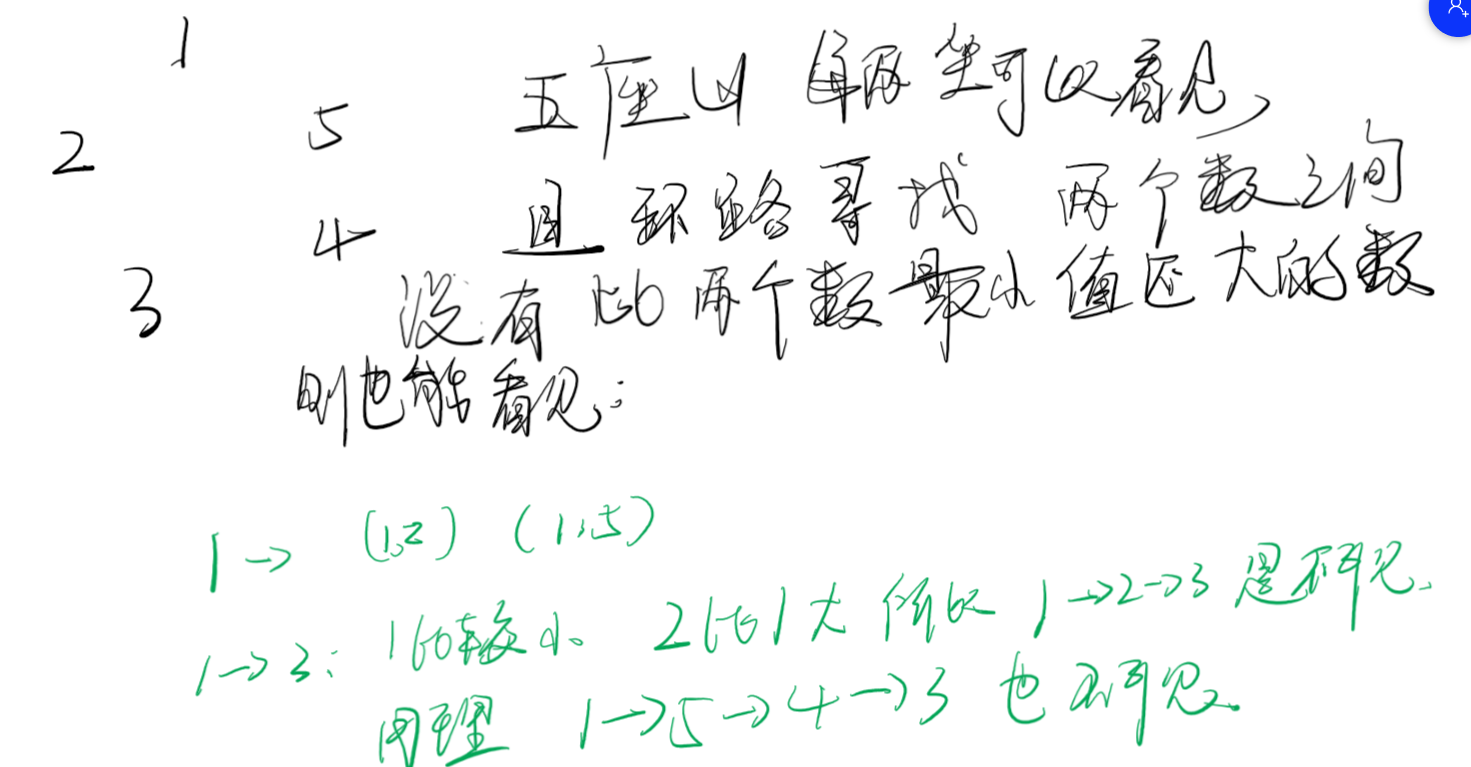 1
2
5
4
3
五座山 每两座可以看见,
且 环路寻找 两个数之间
没有比两个数最小值还大的数
则也能看见:
1→ (1,2) (1,5)
1→3: 1比较小 2比1大 所以 1→2→3 是不可见.
同理 1→5→4→3 也不可见.